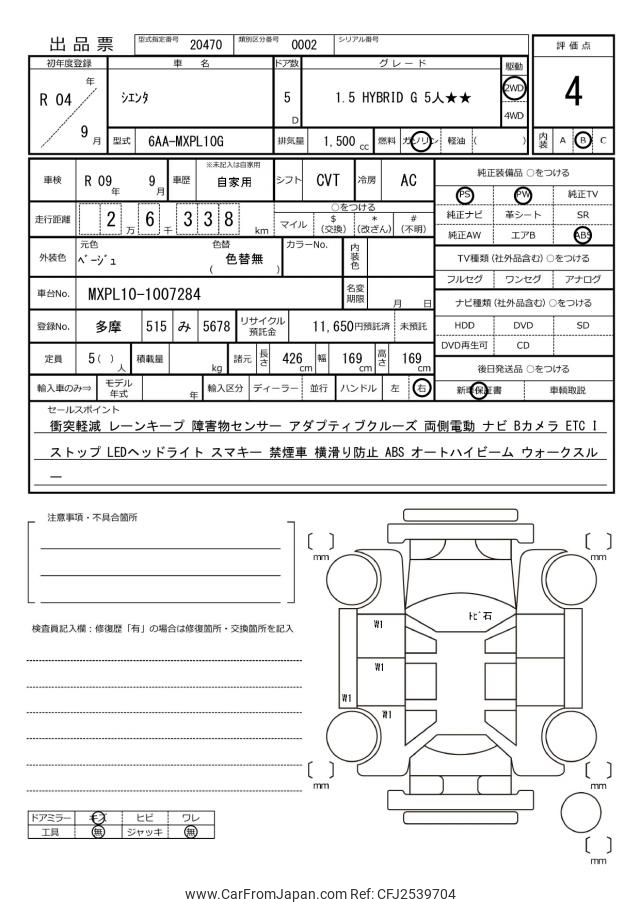 出品票 型式指定番号 20470 類別区分番号 0002 シリアル番号
初年度登録 車 名 ドア数 グレード 駆動 評価点
R 04 年 9 月 シエンタ 5 D 1.5 HYBRID G 5人★★ 2WD 4WD 4
型式 6AA-MXPL10G 排気量 1,500 cc 燃料 ガソリン 軽油 ( ) 内装 A B C
車検 R 09 年 9 月 車歴 ※未記入は自家用 自家用 シフト CVT 冷房 AC
走行距離 2 万 6 千 3 3 8 km ○をつける
マイル $ (交換) * (改ざん) # (不明)
外装色 元色 ベージュ 色替 ( 色替無 ) カラーNo. 内装色
車台No. MXPL10-1007284 名変期限 月 日
登録No. 多摩 515 み 5678 リサイクル預託金 11,650円預託済 未預託
定員 5 ( ) 人 積載量 kg 諸元 長さ 426 cm 幅 169 cm 高さ 169 cm
輸入車のみ⇒ モデル年式 年 輸入区分 ディーラー 並行 ハンドル 左 右
純正装備品 ○をつける
PS PW 純正TV
純正ナビ 革シート SR
純正AW エアB ABS
TV種類 (社外品含む) ○をつける
フルセグ ワンセグ アナログ
ナビ種類 (社外品含む) ○をつける
HDD DVD SD
DVD再生可 CD
後日発送品 ○をつける
新車保証書 車輌取説
セールスポイント
衝突軽減 レーンキープ 障害物センサー アダプティブクルーズ 両側電動 ナビ Bカメラ ETC I
ストップ LEDヘッドライト スマキー 禁煙車 横滑り防止 ABS オートハイビーム ウォークスル
ー
注意事項・不具合箇所
検査員記入欄:修復歴「有」の場合は修復箇所・交換箇所を記入
mm
mm
トビ石
W1
W1
W1
W1
mm
mm
mm
ドアミラー キズ ヒビ ワレ
工具 無 ジャッキ 無
www.CarFromJapan.com Ref: CFJ2539704